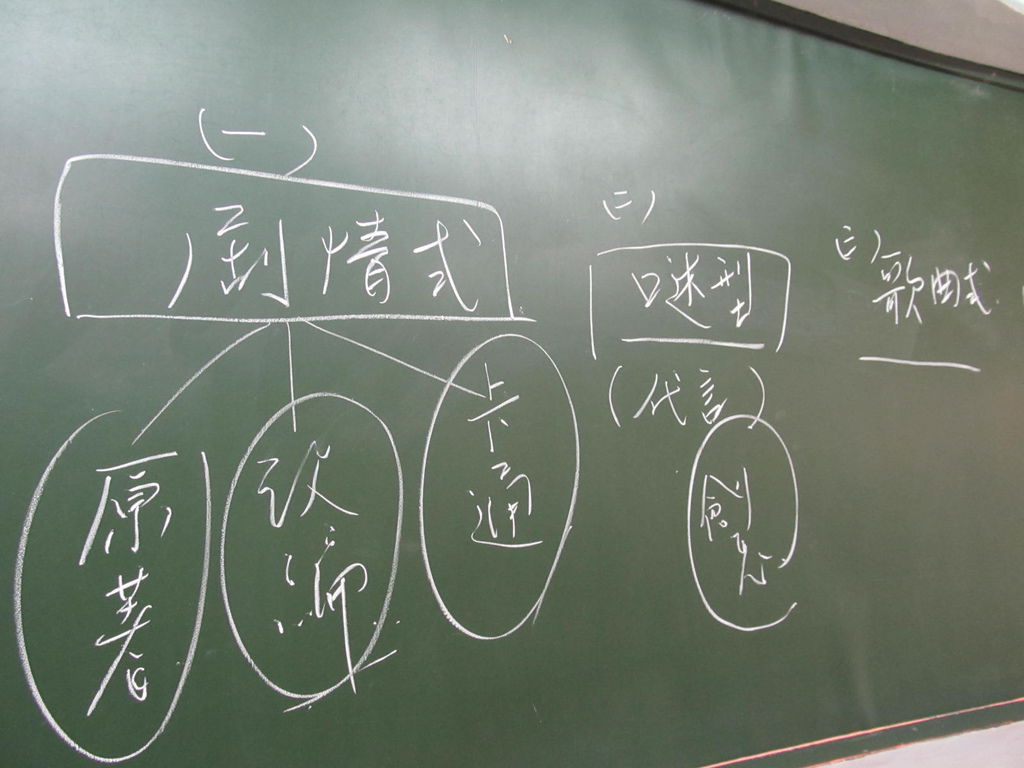 (一)
劇情式
原著
改編
卡通
(二)
口述型
(代言)
創
(三)
歌曲式